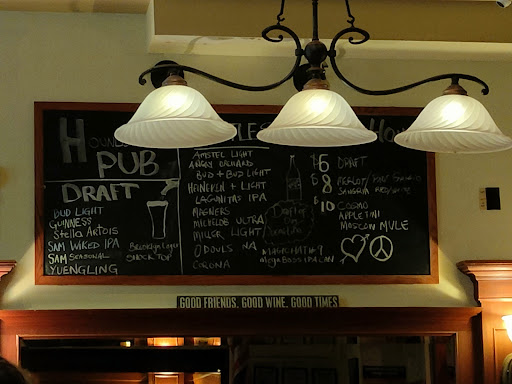 HOUNDS
PUB
DRAFT
BUD LIGHT
GUINNESS
Stella Artois
SAM WICKED IPA
SAM SEASONAL
YUENGLING
Brooklyn Lager
SHOCK TOP
AMSTEL LIGHT
ANGRY ORCHARD
BUD + BUD LIGHT
HEINEKEN + LIGHT
LAGUNITAS IPA
MAGNERS
MICHELOB ULTRA
MILLER LIGHT
O'DOULS NA
CORONA
MAGIC HAT #9
$6 DRAFT
$8 MERLOT/
SANGRIA PROSECCO
$10 COSMO
APPLETINI
MOSCOW MULE
GOOD FRIENDS, GOOD WINE, GOOD TIMES